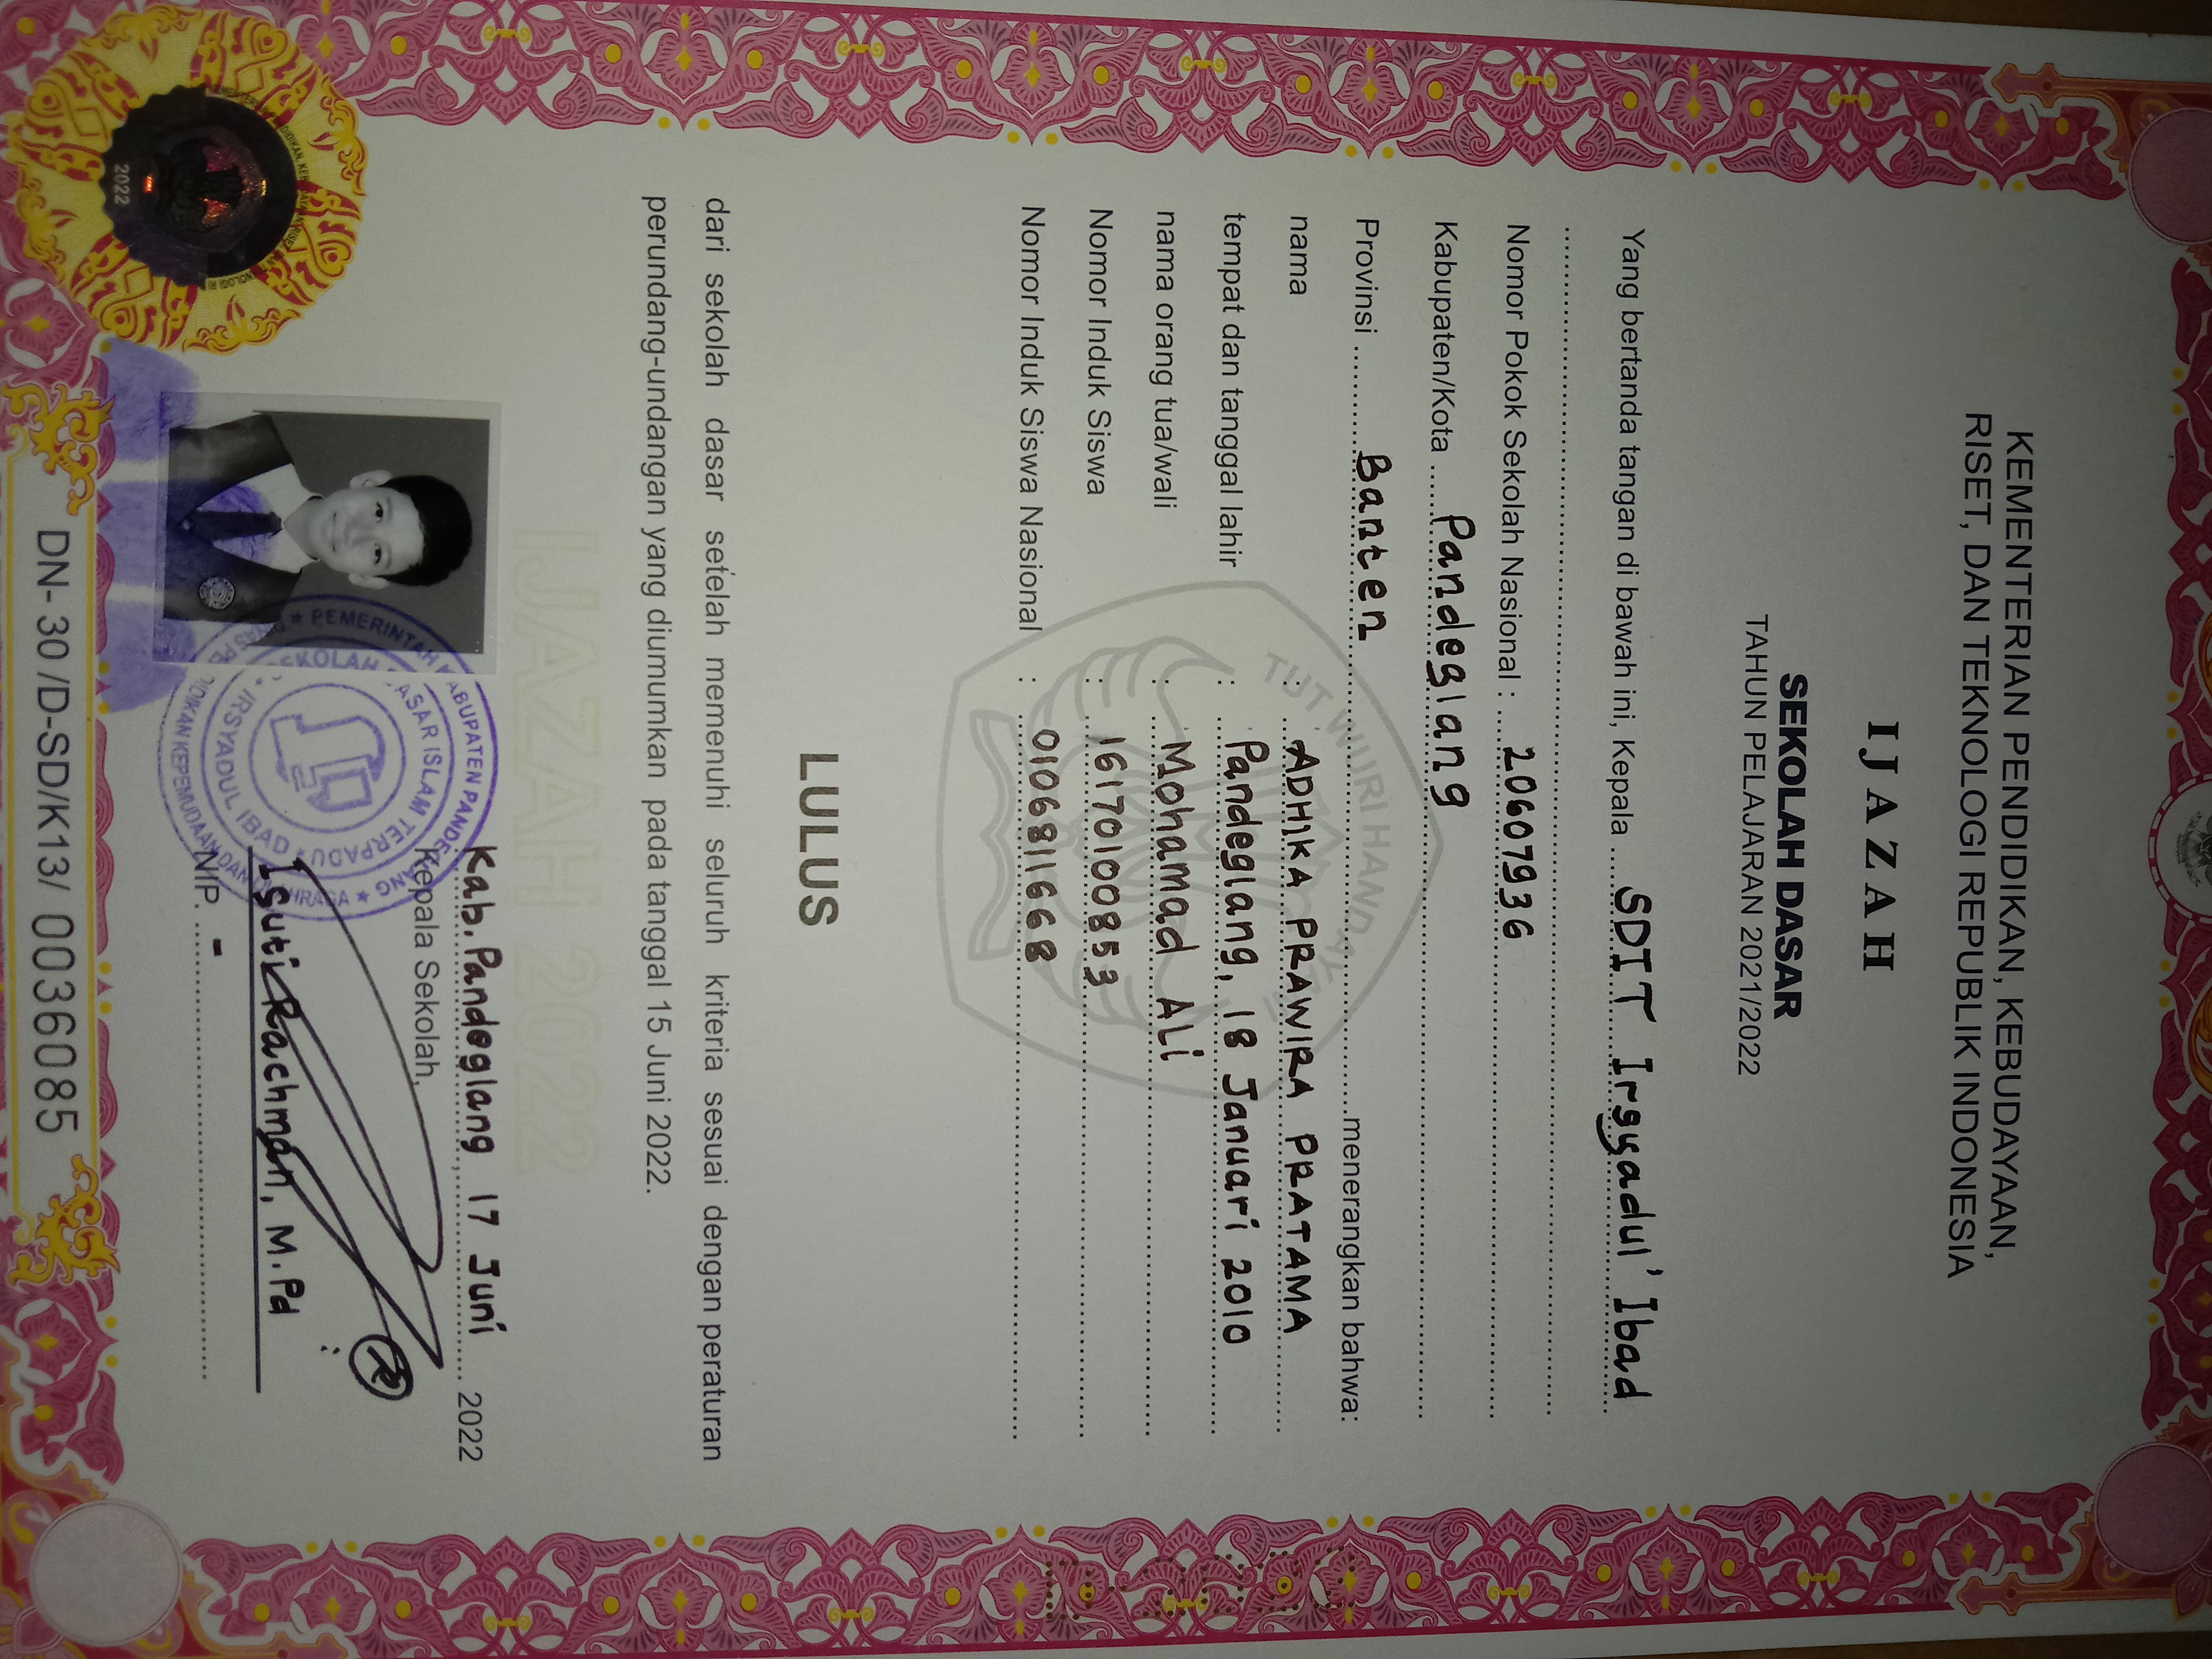 KEMENTERIAN PENDIDIKAN, KEBUDAYAAN,
RISET, DAN TEKNOLOGI REPUBLIK INDONESIA
IJAZAH
SEKOLAH DASAR
TAHUN PELAJARAN 2021/2022
Yang bertanda tangan di bawah ini, Kepala SDIT Irsyadul' Ibad
Nomor Pokok Sekolah Nasional : 20607936
Kabupaten/Kota Pandeglang
Provinsi Banten menerangkan bahwa:
TUT WURI HANDAYANI
nama : ADHIKA PRAWIRA PRATAMA
tempat dan tanggal lahir : Pandeglang, 18 Januari 2010
nama orang tua/wali : Mohamad ALi
Nomor Induk Siswa : 16170100853
Nomor Induk Siswa Nasional : 0106811668
LULUS
dari sekolah dasar setelah memenuhi seluruh kriteria sesuai dengan peraturan
perundang-undangan yang diumumkan pada tanggal 15 Juni 2022.
IJAZAH 2022
Kab. Pandeglang, 17 Juni 2022
Kepala Sekolah,
PEMERINTAH KABUPATEN PANDEGLANG
DASAR ISLAM TERPADU
IRSYADUL IBAD
DIDIKAN KEPEMUDAAN DAN
Isuti Rachman, M.Pd
NIP. -
2022
DN- 30 /D-SD/K13/ 0036085